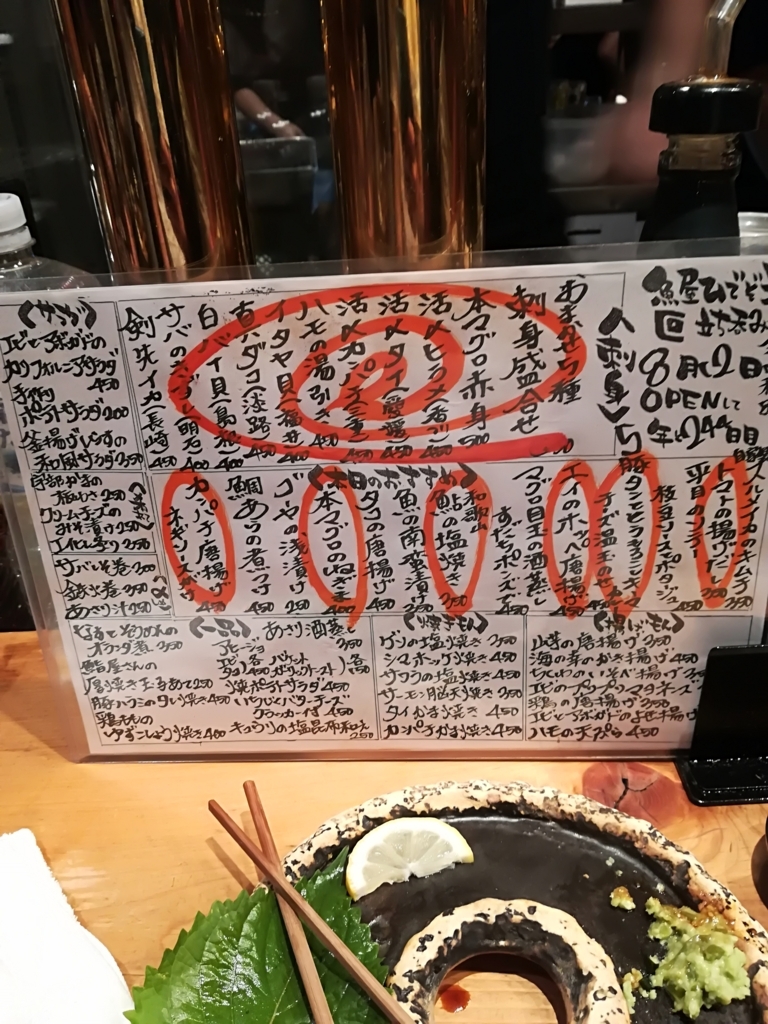 魚屋ひでぞ
立ち呑み
8月12日
OPENして
年と244日目
《刺身》
あまから種
刺身盛合せ
本マグロ赤身 500
活〆ヒラメ(香川) 450
活〆タイ(愛媛) 450
活〆カンパチ(三重) 450
ハモの湯引き 450
イタヤ貝(福井) 450
真ダコ(淡路) 450
白バイ貝(島根) 400
サバのきずし(明石) 400
剣先イカ(長崎) 450
《サラダ》
エビとアボガドの
カリフォルニア サラダ
450
手作り
ポテトサラダ 200
釜揚げしらすの
和風サラダ 350
板わさ 250
クリームチーズの
みそ漬け 250
サバへしこ
鉄火巻 350
あさり汁 250
《本日のおすすめ》
スルメイカのキムチ 350
トマトの揚げだし
平目の
枝豆ソースポタージュ
豚タン
チーズ温玉のせ
エイのホッペ唐揚げ 450
マグロ目玉の酒蒸し
すだちポン酢で 450
和歌山
鮎の塩焼き 350
魚の南蛮漬け 350
タコの唐揚げ 450
本マグロのねぎま 400
ゴーヤの浅漬け 250
鯛あらの煮つけ 450
カンパチ唐揚げ
ネギソースがけ 450
《一品》
あさり酒蒸し 350
アヒージョ
エビ 1各 バケット
タコ 450 ガーリックトースト 1各150
焼ポテトサラダ 450
いちじくとバターチーズ
クラッカー付 450
キュウリの塩昆布和え
250
なすとそうめんの
オランダ煮 350
鮨屋さんの
厚焼き玉子あて 250
豚バラニラのタレ焼き 450
鶏ももの
ゆずこしょう焼き 400
《焼きもん》
ゲソの塩焼き 350
シマホッケ焼き 450
サワラの塩焼き 350
サーモン脳天焼き 350
タイかま焼き 450
カンパチかま焼き 450
《揚げもん》
山芋の唐揚げ 350
海の幸のかき揚げ 450
ちくわのいそべ揚げ 350
エビのプリプリマヨネーズ
鶏の唐揚げ 350
エビとアボガドのよせ揚げ
ハモの天ぷら 450